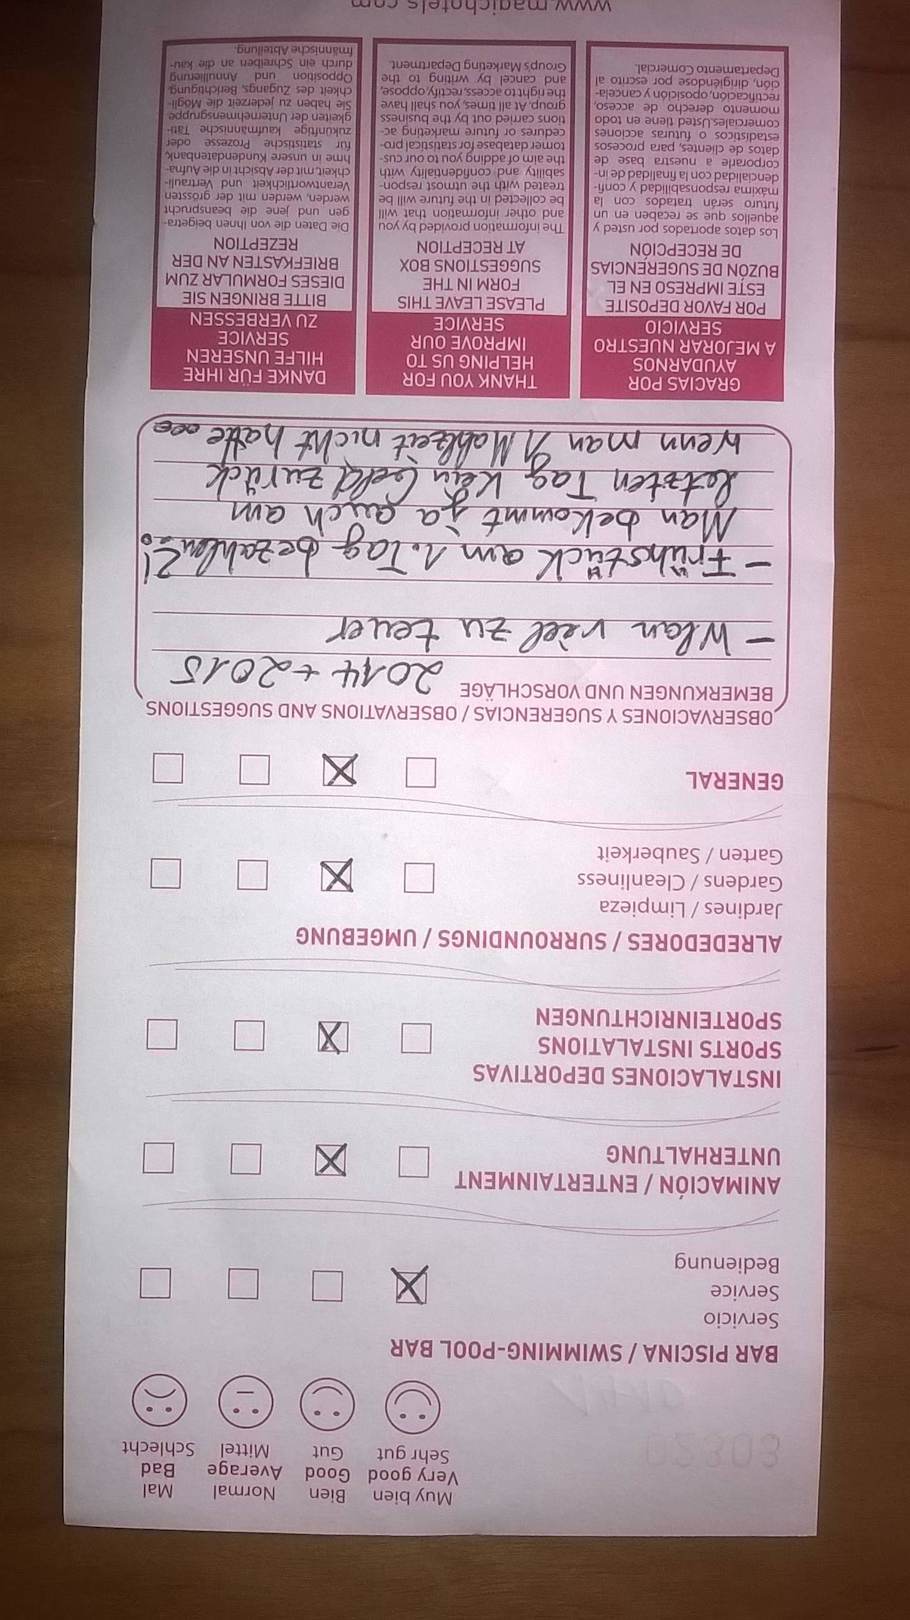 Muy bien Bien Normal Mal
Very good Good Average Bad
Sehr gut Gut Mittel Schlecht
BAR PISCINA / SWIMMING-POOL BAR
Servicio
Service
Bedienung
ANIMACIÓN / ENTERTAINMENT
UNTERHALTUNG
INSTALACIONES DEPORTIVAS
SPORTS INSTALATIONS
SPORTEINRICHTUNGEN
ALREDEDORES / SURROUNDINGS / UMGEBUNG
Jardines / Limpieza
Gardens / Cleanliness
Garten / Sauberkeit
GENERAL
OBSERVACIONES Y SUGERENCIAS / OBSERVATIONS AND SUGGESTIONS
BEMERKUNGEN UND VORSCHLÄGE
2014 + 2015
- Wlan viel zu teuer
- Frühstück am 1. Tag bezahlen?!
Man bekommt ja auch am
letzten Tag kein Geld zurück
wenn man 1 Mahlzeit nicht hatte ...
GRACIAS POR
AYUDARNOS
A MEJORAR NUESTRO
SERVICIO
POR FAVOR DEPOSITE
ESTE IMPRESO EN EL
BUZÓN DE SUGERENCIAS
DE RECEPCIÓN
Los datos aportados por usted y
aquellos que se recaben en un
futuro serán tratados con la
máxima responsabilidad y confi-
dencialidad con la finalidad de in-
corporarle a nuestra base de
datos de clientes, para procesos
estadísticos o futuras acciones
comerciales.Usted tiene en todo
momento derecho de acceso,
rectificación, oposición y cancela-
ción, dirigiéndose por escrito al
Departamento Comercial.
THANK YOU FOR
HELPING US TO
IMPROVE OUR
SERVICE
PLEASE LEAVE THIS
FORM IN THE
SUGGESTIONS BOX
AT RECEPTION
The information provided by you
and other information that will
be collected in the future will be
treated with the utmost respon-
sability and confidentiality with
the aim of adding you to our cus-
tomer database for statistical pro-
cedures or future marketing ac-
tions carried out by the business
group. At all times, you shall have
the right to access, rectify, oppose,
and cancel by writing to the
Group's Marketing Department.
DANKE FÜR IHRE
HILFE UNSEREN
SERVICE
ZU VERBESSEN
BITTE BRINGEN SIE
DIESES FORMULAR ZUM
BRIEFKASTEN AN DER
REZEPTION
Die Daten die von Ihnen beigetra-
gen und jene die beansprucht
werden, werden mit der grössten
Verantwortlichkeit und Vertrauli-
chkeit, mit der Absicht in die Aufna-
hme in unsere Kundendatenbank,
für statistische Prozesse oder
zukünftige kaufmännische Täti-
gkeiten der Unternehmensgruppe.
Sie haben zu jederzeit die Mögli-
chkeit des Zugangs, Berichtigung,
Opposition und Annullierung
durch ein Schreiben an die kau-
fmännische Abteilung.
www.magichotels.com